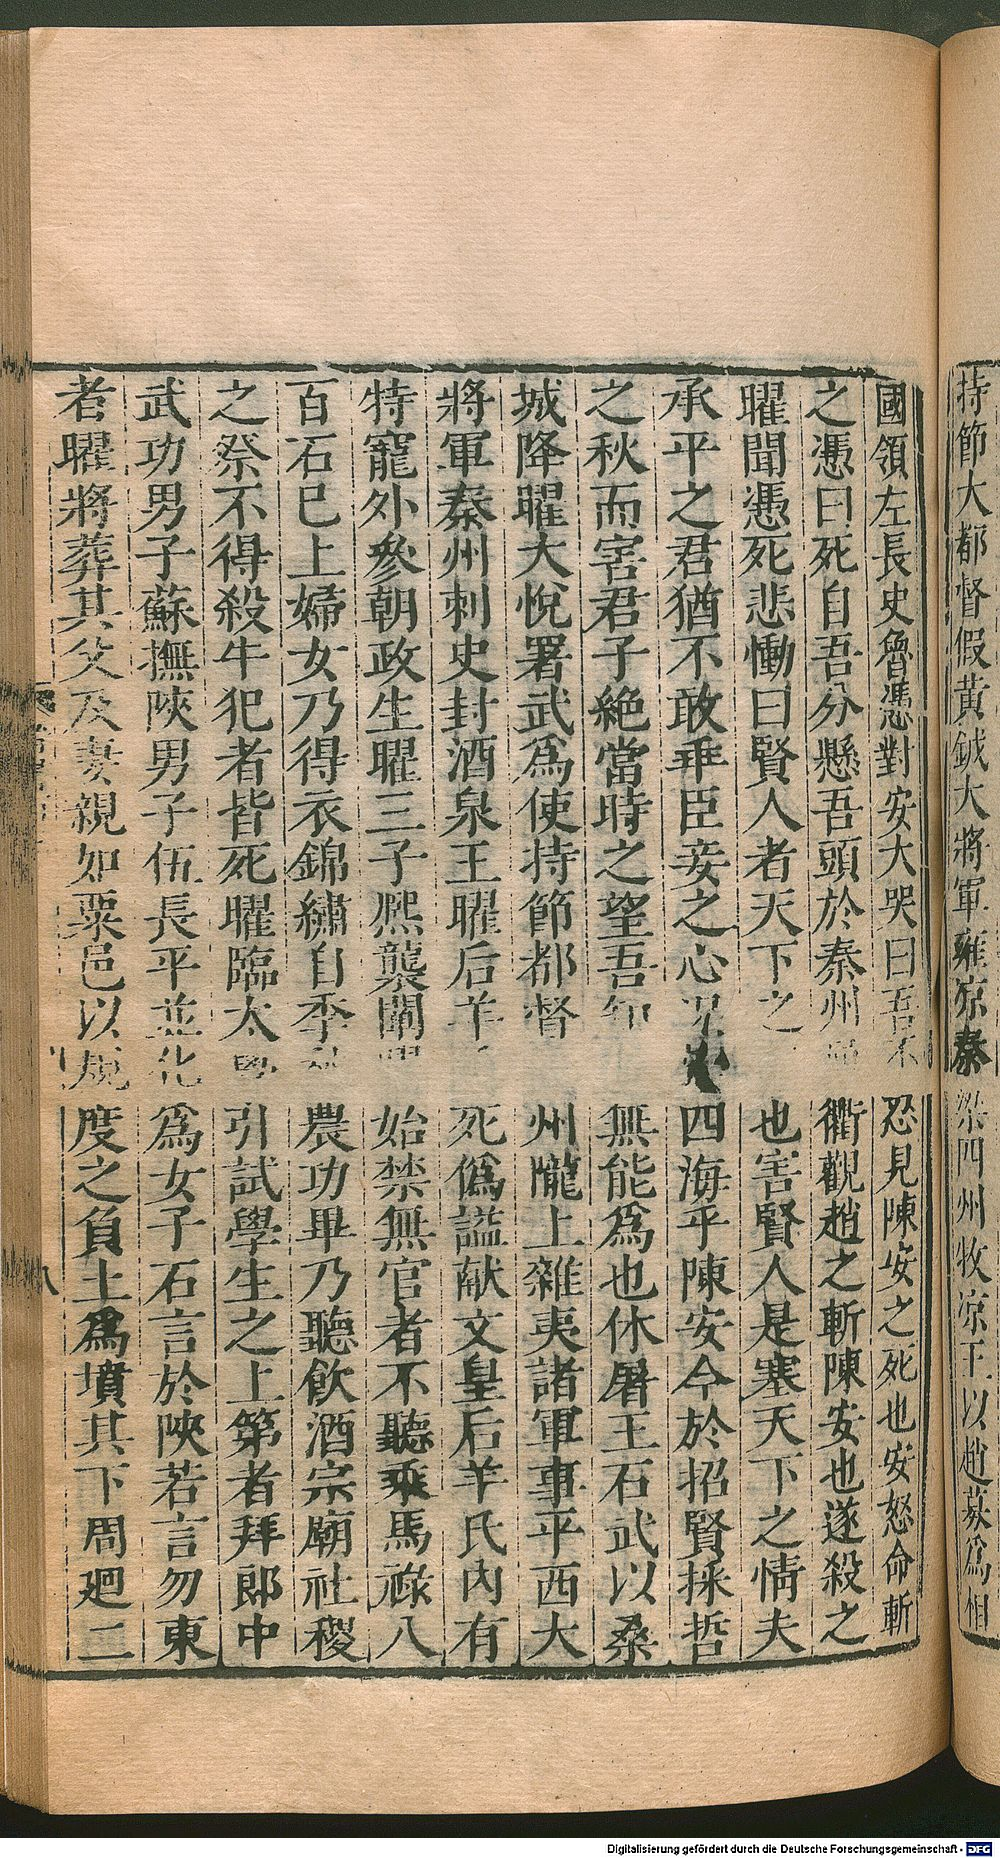 持節大都督假黃鉞大將軍雍涼秦梁四州牧涼王以趙募爲相
國領左長史魯憑對安大哭曰吾不忍見陳安之死也安怒命斬
之憑曰死自吾分懸吾頭於秦州衢觀趙之斬陳安也遂殺之
曜聞憑死悲慟曰賢人者天下之也害賢人是塞天下之情夫
承平之君猶不敢乖臣妾之心況四海乎陳安今於招賢採哲
之秋而害君子絶當時之望吾知無能爲也休屠王石武以桑
城降曜大悅署武爲使持節都督州隴上雜夷諸軍事平西大
將軍秦州刺史封酒泉王曜后羊死僞謚献文皇后羊氏內有
特寵外參朝政生曜三子熙襲闡始禁無官者不聽乘馬祿八
百石已上婦女乃得衣錦繡自季農功畢乃聽飲酒宗廟社稷
之祭不得殺牛犯者皆死曜臨太引試學生之上第者拜郎中
武功男子蘇撫陝男子伍長平並化爲女子石言於陝若言勿東
者曜將葬其父及妻親如粟邑以規度之負土爲墳其下周廻二
八
Digitalisierung gefördert durch die Deutsche Forschungsgemeinschaft - DFG